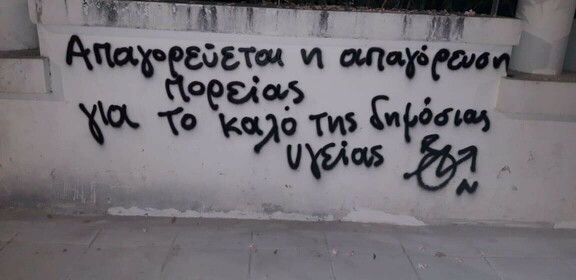 Απαγορεύεται η απαγόρευση
πορείας
για το καλό της δημόσιας
υγείας
N